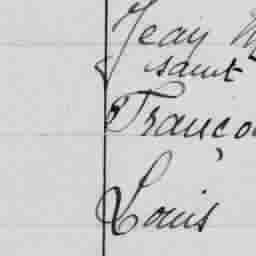 Jean
saint
Franço
Louis